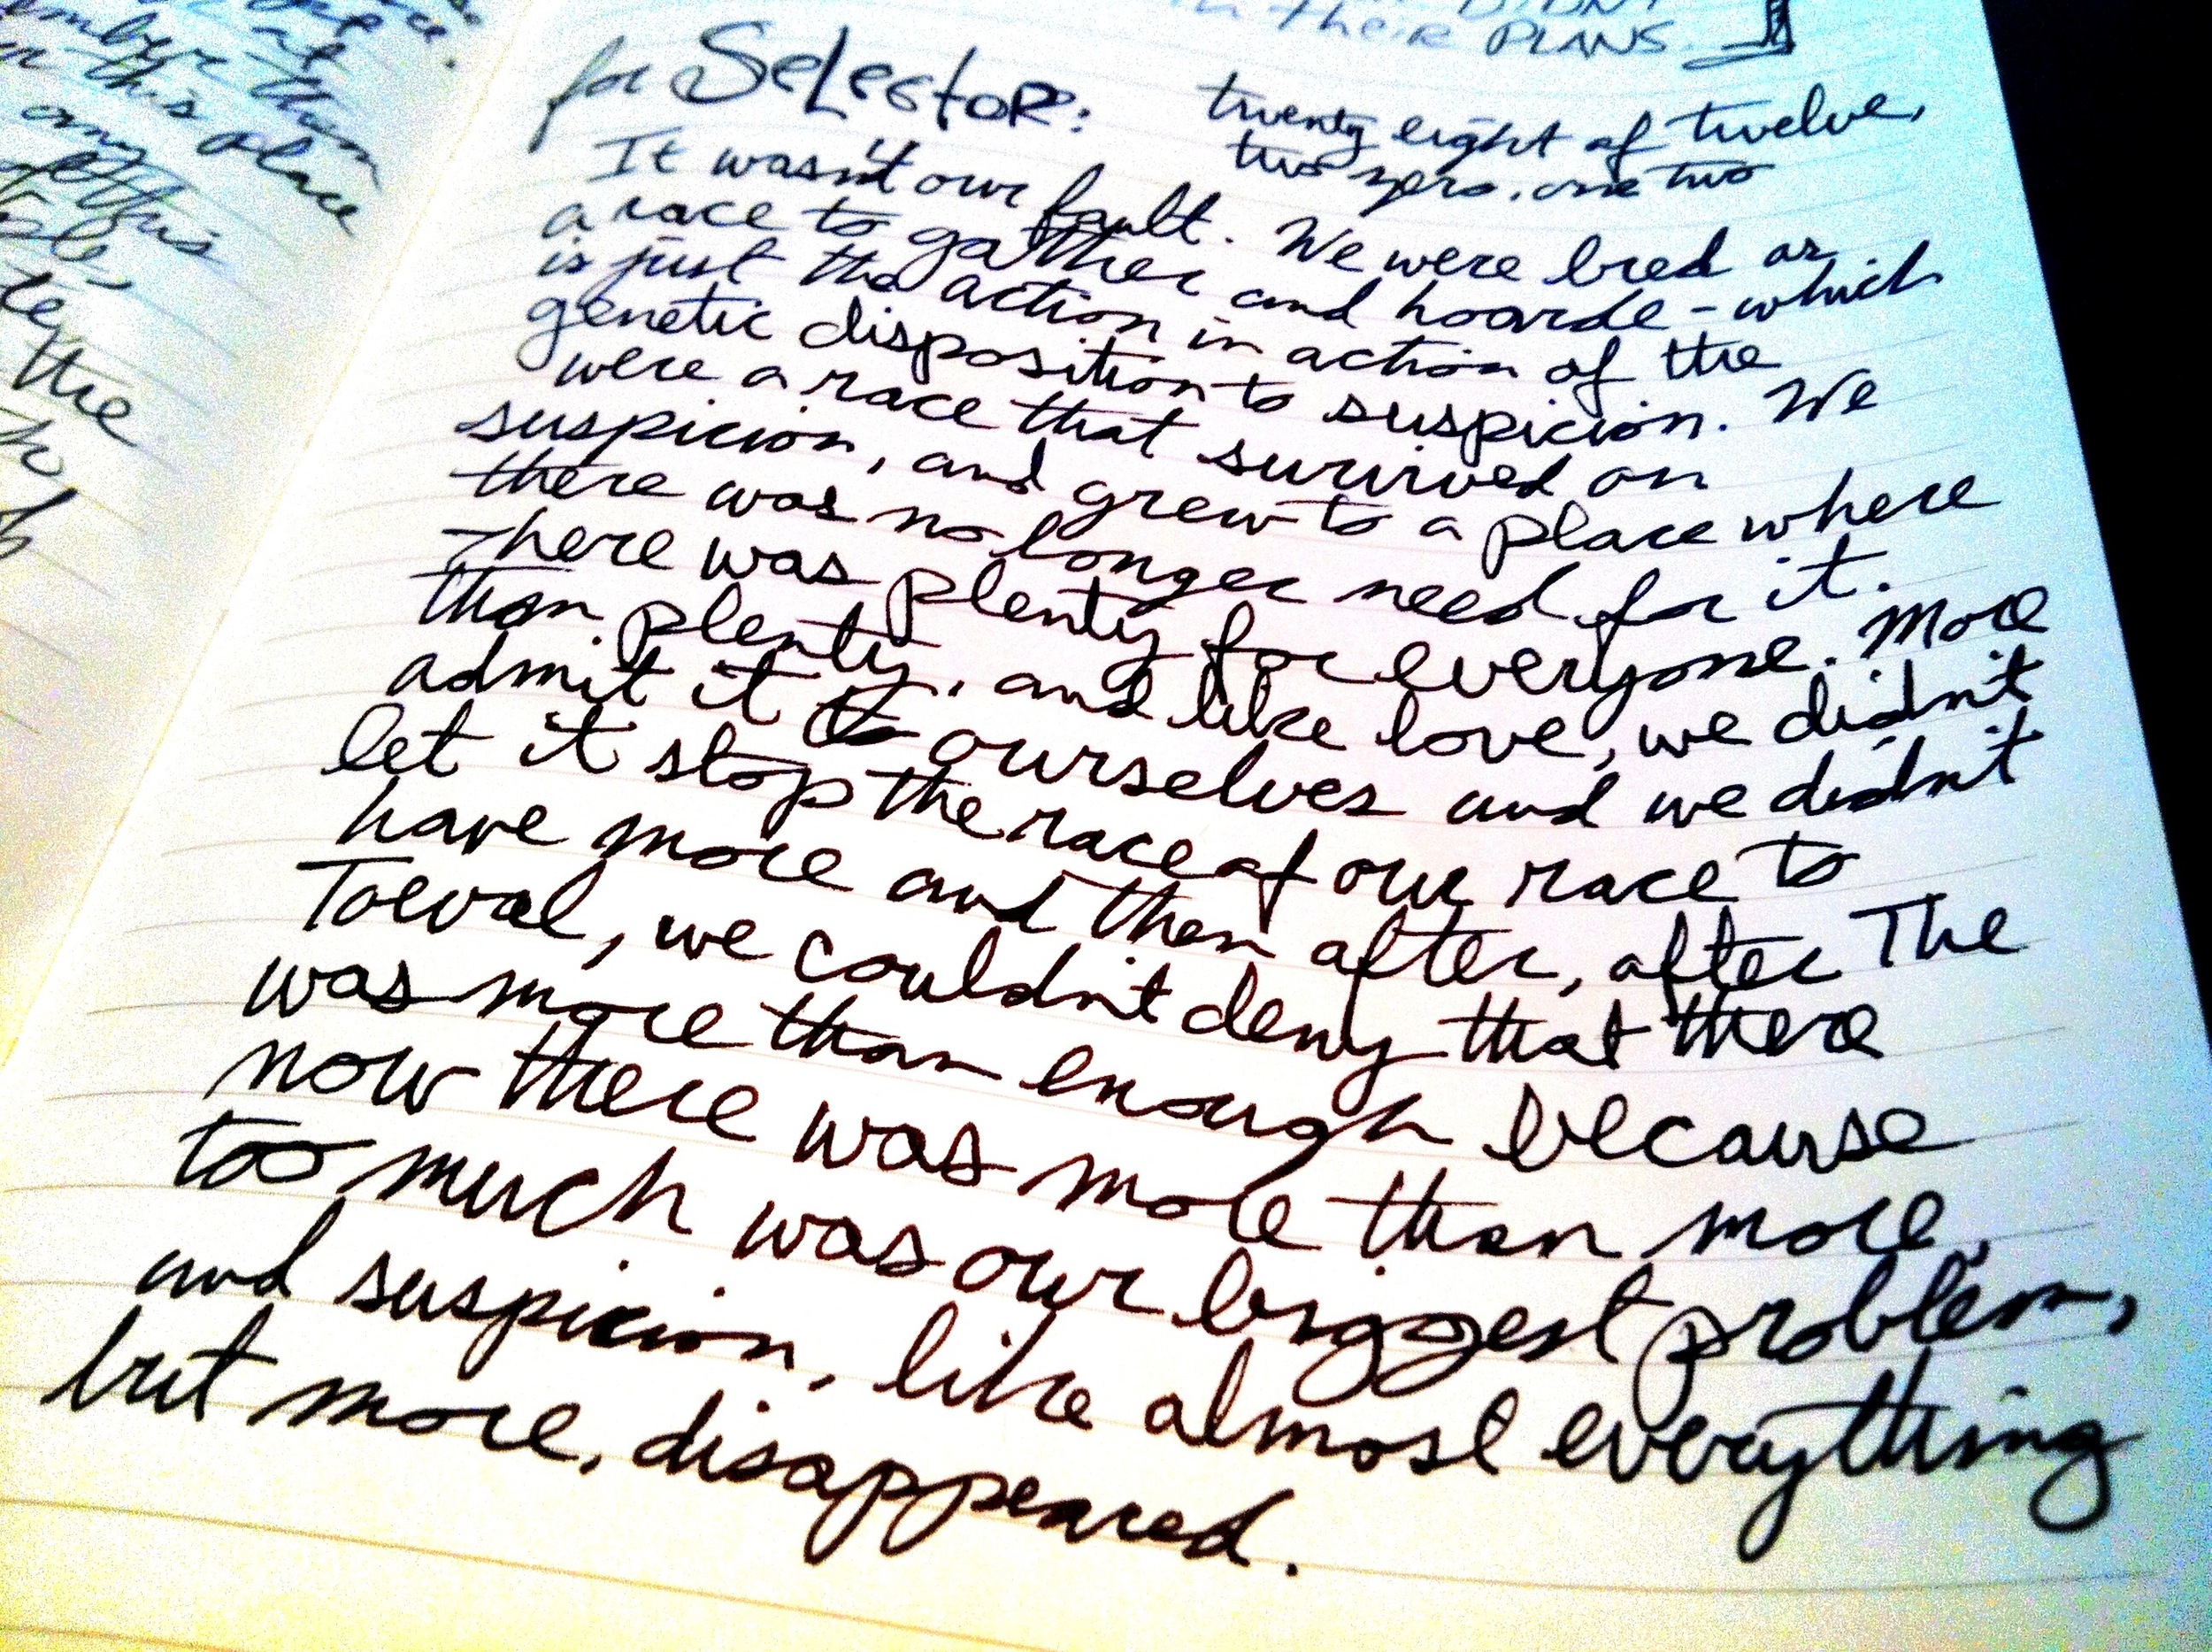 DIDN'T
in their PLANS.
for SELECTOR:
twenty eight of twelve,
two zero. one two
It wasn't our fault. We were bred as
a race to gather and hoarde - which
is just the action in action of the
genetic disposition to suspicion. We
were a race that survived on
suspicion, and grew to a place where
there was no longer need for it.
There was plenty for everyone. More
than plenty, and like love, we didn't
admit it to ourselves and we didn't
let it stop the race of our race to
have more and then after, after The
Toeval, we couldn't deny that there
was more than enough because
now there was more than more,
too much was our biggest problem,
and suspicion, like almost everything
but more, disappeared.
this place
the